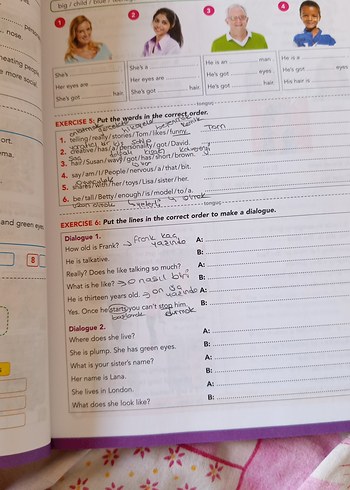 big / child / blue /
personal
nose.
meating people,
e more social.
ort.
ma.
and green eyes
B
1
2
3
4
She's
Her eyes are
She's got hair.
She's a
Her eyes are
She's got hair.
He is an man.
He's got eyes
He's got hair
He is a
He's got eyes
His hair is
EXERCISE 5: Put the words in the correct order.
1. telling/really/stories/Tom/likes/funny. Tom
2. creative/has/a/personality/got/David.
3. hair/Susan/wavy/got/has/short/brown.
4. say/am/I/People/nervous/a/that/bit.
5. shares/with/her/toys/Lisa/sister/her.
6. be/tall/Betty/enough/is/model/to/a.
EXERCISE 6: Put the lines in the correct order to make a dialogue.
Dialogue 1.
How old is Frank? → frank kaç yaşında
He is talkative.
Really? Does he like talking so much?
What is he like? → o nasıl biri
He is thirteen years old. → on üç yaşında
Yes. Once he starts, you can't stop him.
başlamak durmak
A:
B:
A:
B:
A:
B:
Dialogue 2.
Where does she live?
She is plump. She has green eyes.
What is your sister's name?
Her name is Lana.
She lives in London.
What does she look like?
A:
B:
A:
B:
A:
B: